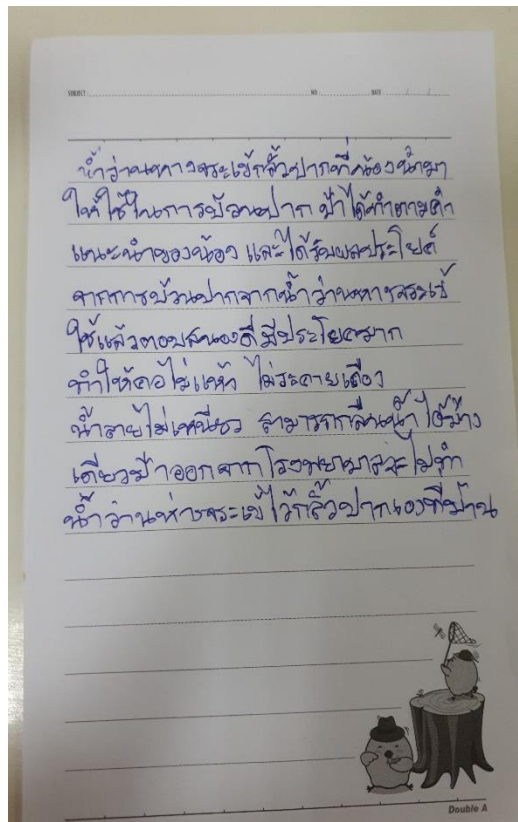 SUBJECT : NO : DATE : / /
น้ำว่านหางจระเข้กลั้วปากที่น้องนำมา
ให้ใช้ในการบ้วนปาก ป้าได้ทำตามคำ
แนะนำของน้อง และได้รับผลประโยชน์
จากการบ้วนปากจากน้ำว่านหางจระเข้
ใช้แล้วตอบสนองดีมีประโยชมาก
ทำให้คอไม่แห้ว ไม่ระคายเคือง
น้ำลายไม่เหนียว สามารถกลืนน้ำได้บ้าง
เดี๋ยวป้าออกจากโรงพยาบาลจะไปทำ
น้ำว่านห่างจระเข้ไว้กลั้วปากเองที่บ้าน
Double A